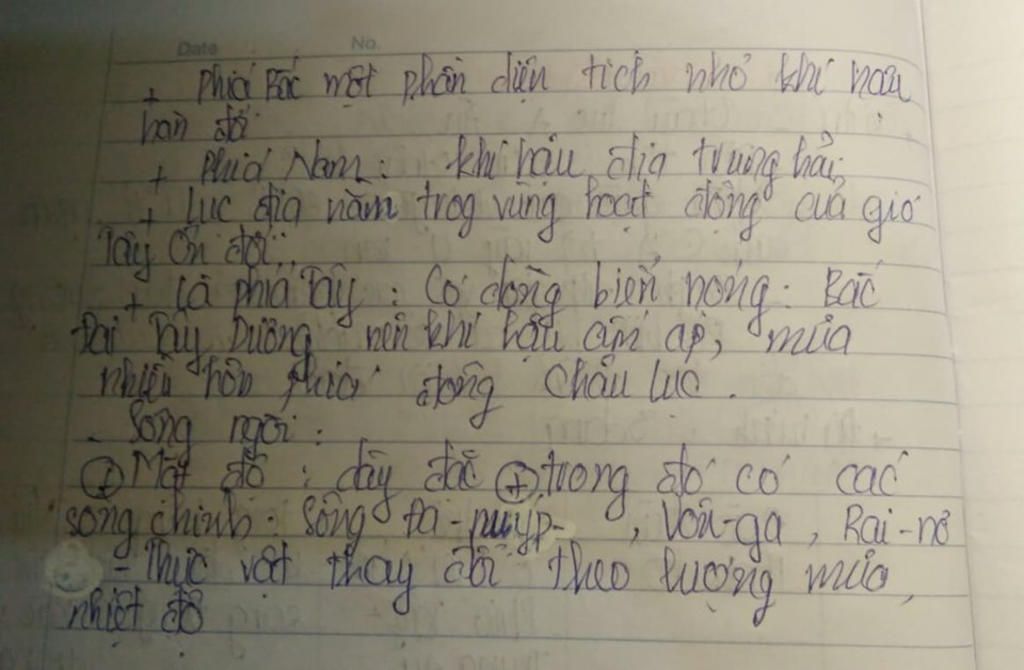 Date No.
+ phía Bắc một phần diện tích nhỏ khí hậu
hàn đới
+ phía Nam: khí hậu địa trung hải;
+ Lục địa nằm trog vùng hoạt động của gió
Tây Ôn đới..
+ Cả phía Tây: Có dòng biển nóng: Bắc
Đại Tây Dương nên khí hậu ấm áp, mưa
nhiều hơn phía đông Châu lục.
- Sông ngòi:
⊕ Mật độ: dày đặc ⊕ trong đó có các
sông chính: Sông Đa-nuýp-, Vôn-ga, Rai-nơ
- Thực vật thay đổi theo lượng mưa,
nhiệt độ